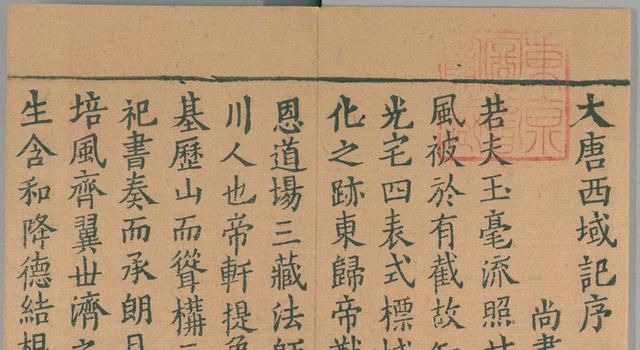 大唐西域記序
尚書
若夫玉毫流照甘
風被於有截故
光宅四表式標域
化之跡東歸帝猷
恩道場三藏法師
川人也帝軒提象
基歷山而聳構
祀書奏而承朗月
培風齊翼世濟之
生含和降德結根